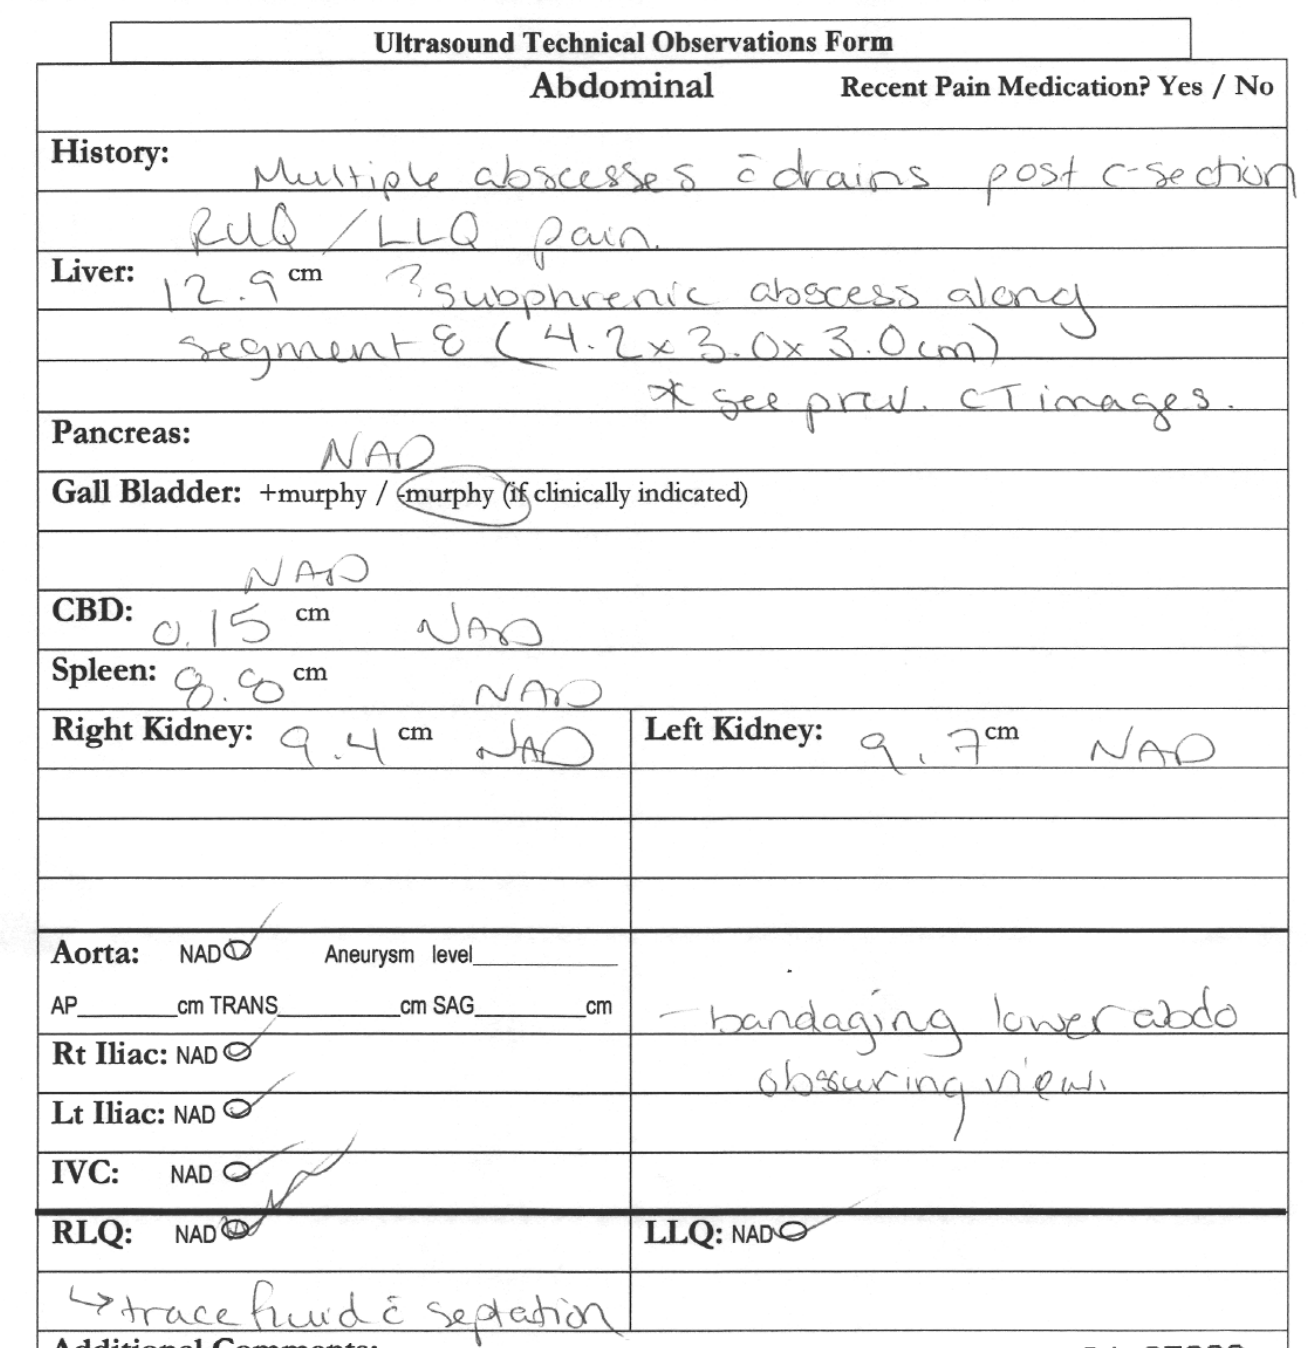 Ultrasound Technical Observations Form
Abdominal Recent Pain Medication? Yes / No
History: Multiple abscesses c̄ drains post c-section
RUQ / LLQ pain.
Liver: 12.9 cm ? subphrenic abscess along
segment 8 (4.2 x 3.0 x 3.0 cm)
* see prev. CT images.
Pancreas: NAD
Gall Bladder: +murphy / -murphy (if clinically indicated)
NAD
CBD: 0.15 cm NAD
Spleen: 8.8 cm NAD
Right Kidney: 9.4 cm NAD Left Kidney: 9.7 cm NAD
Aorta: NAD Aneurysm level____________
AP________cm TRANS__________cm SAG_________cm - bandaging lower abdo
Rt Iliac: NAD obscuring view.
Lt Iliac: NAD
IVC: NAD
RLQ: NAD LLQ: NAD
↳ trace fluid c̄ septation
Additional Comments: